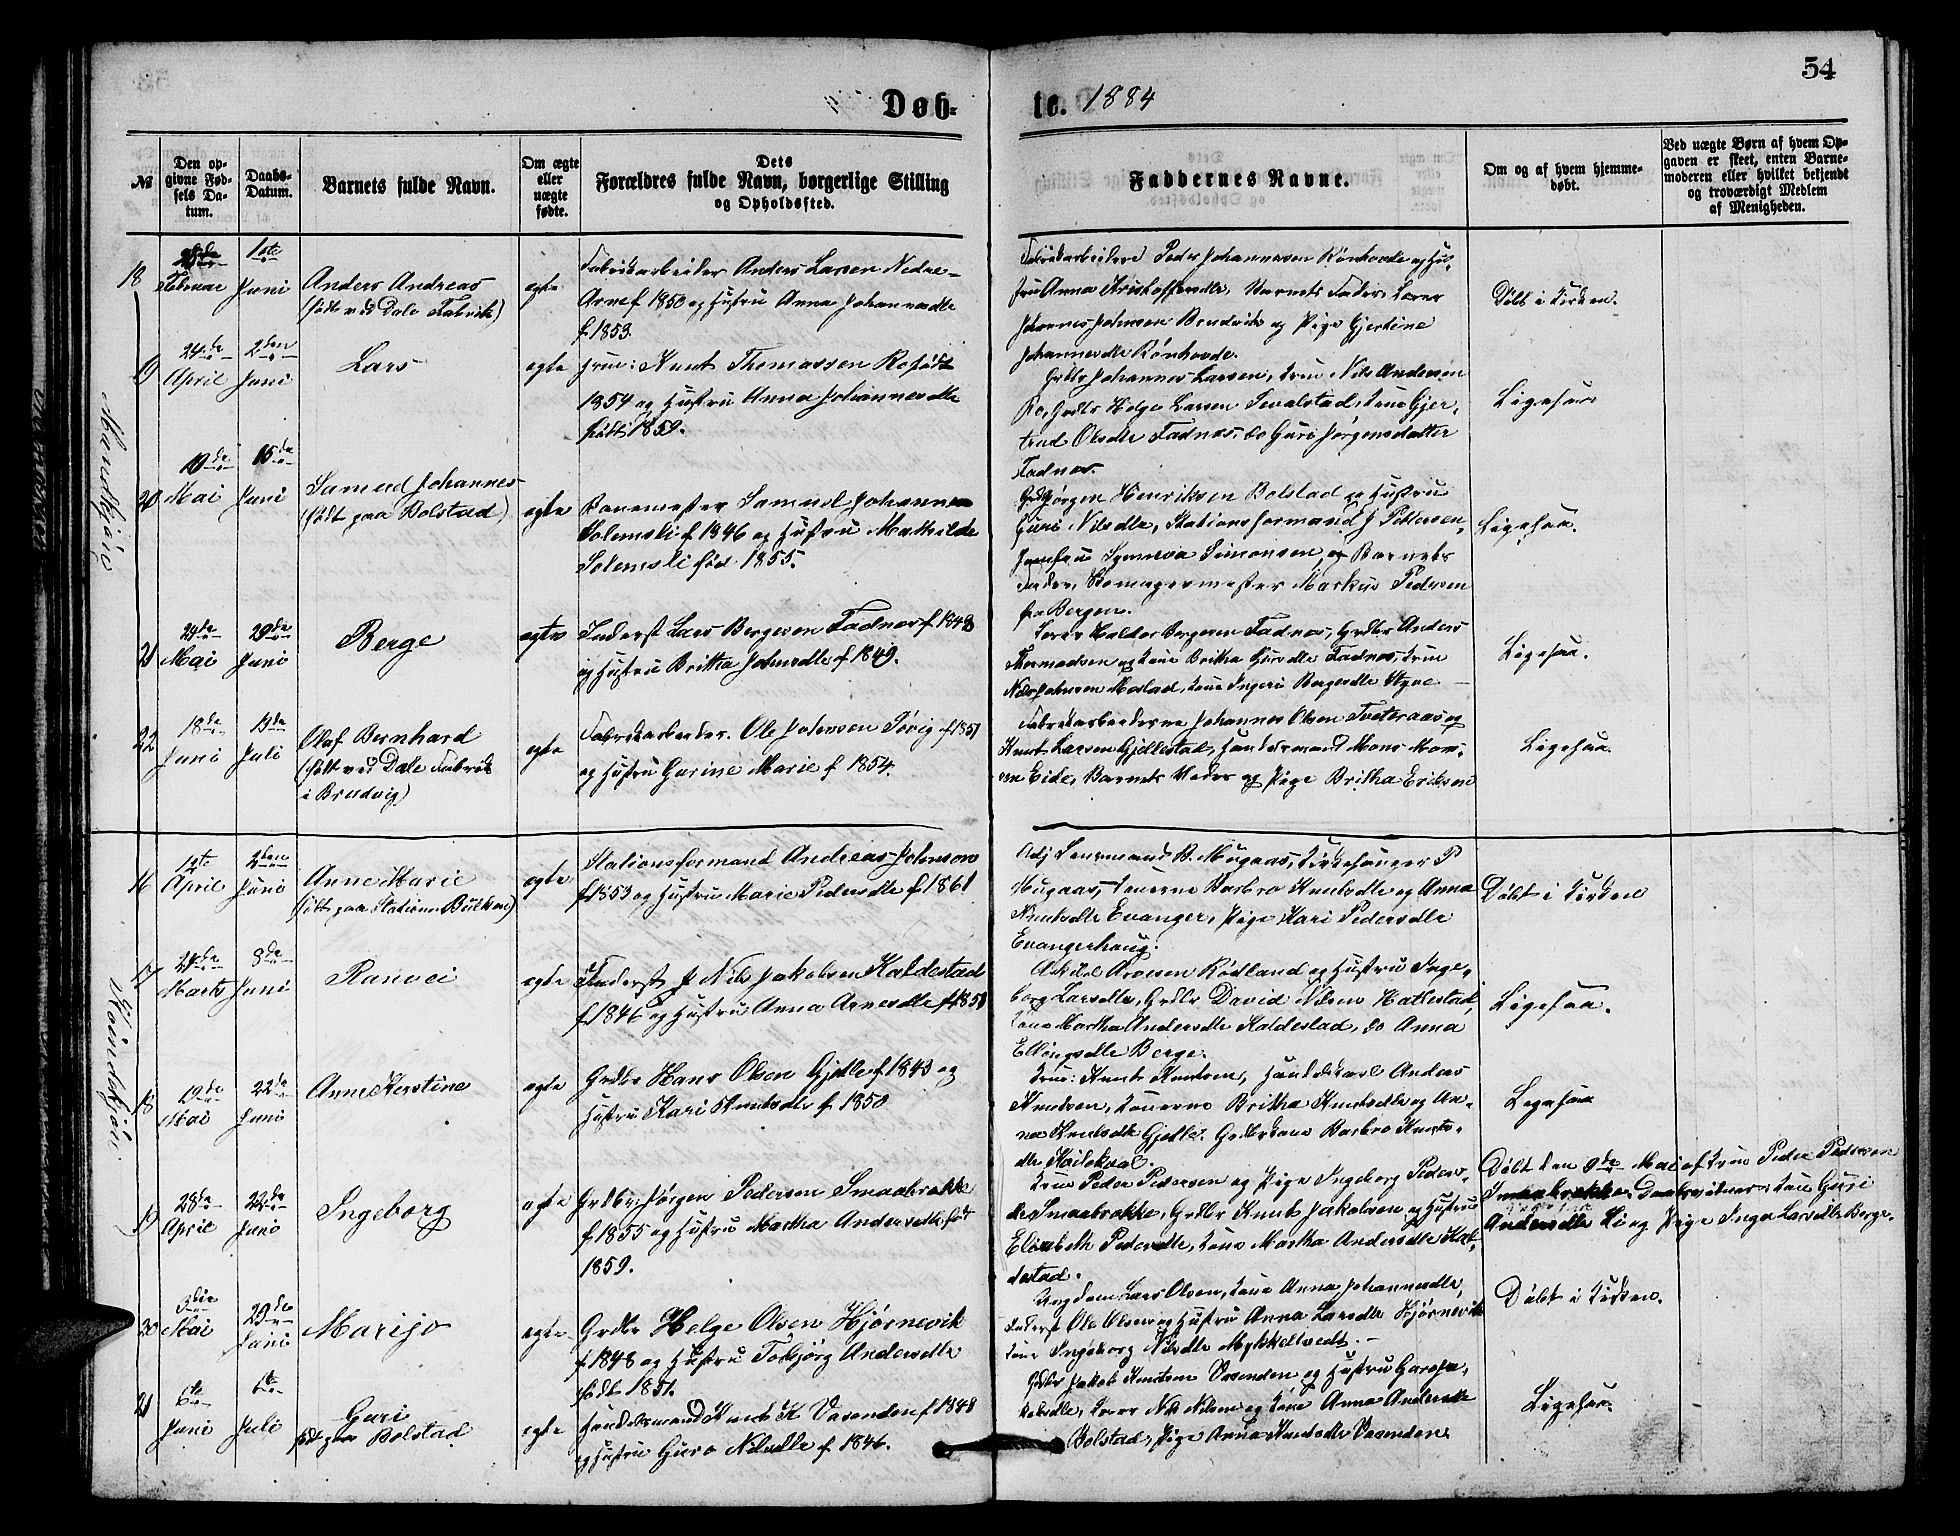 54
Døb-
te. 1884
№
Den op-
givne Fød-
sels Da-
tum.
Daabs-
Datum.
Barnets fulde Navn.
Om ægte
eller
uægte
fødte.
Dets
Forældres fulde Navn, borgerlige Stilling
og Opholdssted.
Faddernes Navne.
Om og af hvem hjemme-
døbt.
Ved uægte Børn af hvem Op-
gaven er skeet, enten Barne-
moderen eller hvilket bekjendt
og troværdigt Medlem
af Menigheden.
Mandkjøn
18
Februar
1ste
Juni
Anders Andreas
(født ved Dale Fabrik)
ægte
Fabrikarbeider Anders Larsen Nedre-
Arne f 1850 og Hustru Anna Johannesdtr
f 1853.
Fabrikarbeidere Peder Johannessen Rønhovde og Hu-
stru Anna Kristoffersdtr, Barnets Fader,
Johannes Johnsen Brudvik og Pige Gjertine
Johannesdtr Rønhovde.
Døbt i Kirken.
19
24de
April
2den
Juni
Lars
ægte
Knut Thomassen Ro født
1854 og Hustru Anna Johannesdtr
født 1859.
Grdbr Johannes Larsen, Nils Andersen
Ro, Grdbr Helge Larsen Kone Gjer-
trud Olsdtr Fadnes, do Guri Jørgensdatter
Fadnes.
Ligesaa
20
10de
Mai
15de
Juni
Samuel Johannes
(født paa Bolstad)
ægte
Banemester Samuel Johannes
Solemsli f 1846 og Hustru Mathilde
Solemsli fød 1855.
Grdbr Jørgen Henriksen Bolstad og Hustru
Guri Nilsdtr, Stationsformand J Pettersen,
Jomfru Synneva Simonsen, og Barnets
Fader, Skomagermester Markus Pedersen
fra Bergen.
Ligesaa.
21
24de
Mai
29de
Juni
Berge
ægte
Inderst Lars Bergesen Fadnes f 1848
og Hustru Britha Johnsdtr f 1849.
Haldor Bergesen Fadnes, Grdbr Anders
og Kone Britha Fadnes,
Johnsen Mestad, Kone Ingeri Bergesdtr
Ligesaa.
22
18de
Juni
Juli
Olaf Bernhard
(født ved Dale Fabrik
i Brudvig)
ægte
Fabrikarbeider Ole Johnsen f 1851
og Hustru Gurine Marie f 1854.
Fabrikarbeiderne Johannes Olsen Tveteraas og
Knut Larsen Gjellestad, Handelsmand Mons Mon-
sen Eide, Barnets Moder og Pige Britha Eriksen
Ligesaa.
Kvindekjøn
16
12te
April
2den
Juni
Anne Marie
(født paa Station Bulken)
ægte
Stationsformand Andreas Johnson
f 1853 og Hustru Marie Pedersdtr f 1861
Adj Lensmand B. Mugaas, Kirkesanger P
Mugaas, Konerne Barbra Knutsdtr og Anna
Knutsdtr Evanger, Pige Kari Pedersdtr
Evangerhaug.
Døbt i Kirken
17
24de
Marts
8de
Juni
Ranvei
ægte
Inderst Nils Jakobsen Kaldestad
f 1846 og Hustru Anna Arnesdtr f 1851
Askild Arnesen Rødland og Hustru Inge-
borg Larsdtr, Grdbr David Nilsen Hatlestad,
Kone Martha Andersdtr Kaldestad, do Anna
Ellingsdtr Berge.
Ligesaa.
18
19de
Mai
22de
Juni
Anne Kerstine
ægte
Grdbr Hans Olsen Gjelle f 1843 og
Hustru Kari Knutsdtr f 1850
Knut Knutsen, Handelskarl Anders
Knutsen, Konerne Britha Knutsdtr og An-
na Knutsdtr Gjelle, Grdbrkone Barbro Knuts-
dtr
Ligesaa
19
28de
April
22de
Juni
Ingeborg
ægte
Grdbr Jørgen Pedersen Smaabrekke
f 1855 og Hustru Martha Andersdtr født
1859.
Peder Pedersen og Pige Ingeborg Peders-
dtr Smaabrekke, Grdbr Knut Jakobsen og Hustru
Elisabeth Pedersdtr, Kone Martha Andersdtr Kal-
destad.
Døbt den 9de Mai af Peder Pedersen
Smaabrekke. Daabsvidner: Kone Guri
Andersdtr Li og Pige Inga Larsdtr Berge.
20
3die
Mai
29de
Juni
Marijo
ægte
Grdbr Helge Olsen Hjørnevik
f 1848 og Hustru Torbjørg Andersdtr
født 1851.
Ungdom Lars Olsen, Kone Anna Johannesdtr,
Inderst Ole Olsen og Hustru Anna Larsdtr Hjørnevik
Kone Ingeborg Nilsdtr Mykkeltvedt.
Døbt i Kirken.
21
6te
Juni
6te
Juli
Guri
født paa Bolstad
ægte
Handelsmand Knut K Vasenden f 1848
og Hustru Guro Nilsdtr f 1846.
Grdbr Jakob Knutsen Vasenden og Hustru Guro Ja-
kobsdtr, Nils Nilsen og Kone Anna Andersdtr
Bolstad, Pige Anna Knutsdtr Vasenden.
Ligesaa.